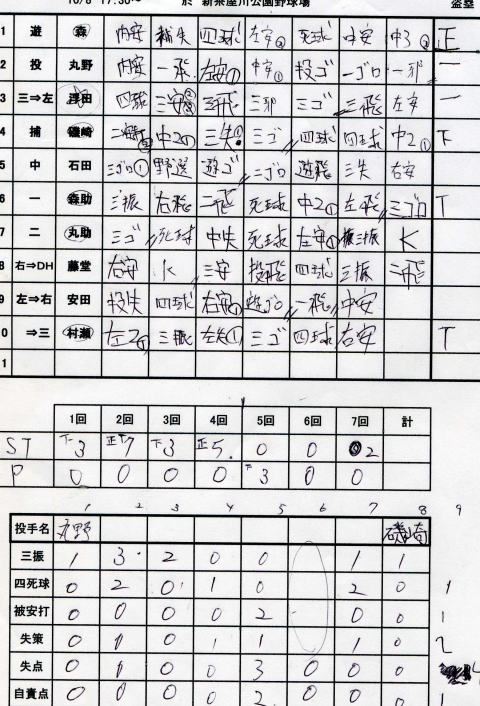 10/8 17:30~ 於 新茶屋川公園野球場 盗塁
1 遊 森 内安 捕失 四球 左安② 死球 中安 中3② 正
2 投 丸野 内安 一飛 左安① 中安① 投ゴ 一ゴロ 一邪 一
3 三⇒左 浮田 四球 三安 三飛 三邪 三ゴ 三飛 左安 一
4 捕 磯崎 中2① 三失 三ゴ 四球 四球 中2① 下
5 中 石田 三ゴロ① 野選 遊ゴ 二ゴロ 遊飛 三失 右安
6 一 森助 三振 右飛 二飛 死球 中2① 左飛 三ゴロ T
7 二 丸助 三ゴ 死球 中失 死球 左安① 振三振 K
8 右⇒DH 藤堂 右安 K 三安 投飛 四球 三振 三飛
9 左⇒右 安田 投失 四球 右安 遊ゴロ 一飛 中安
0 ⇒三 村瀬 左2① 三振 左失① 三ゴ 四球 右安 T
1
1回 2回 3回 4回 5回 6回 7回 計
ST 下3 正下7 下3 正5. 0 0 2
P 0 0 0 0 3 0 0
1 2 3 4 5 6 7 8 9
投手名 丸野 磯崎
三振 1 3 2 0 0 1 1
四死球 0 2 0 1 0 2 0 1
被安打 0 0 0 0 2 0 0 1
失策 0 0 1 1 1 0 2
失点 0 0 0 3 0 0 0
自責点 0 0 0 0 2 0 0 0 1